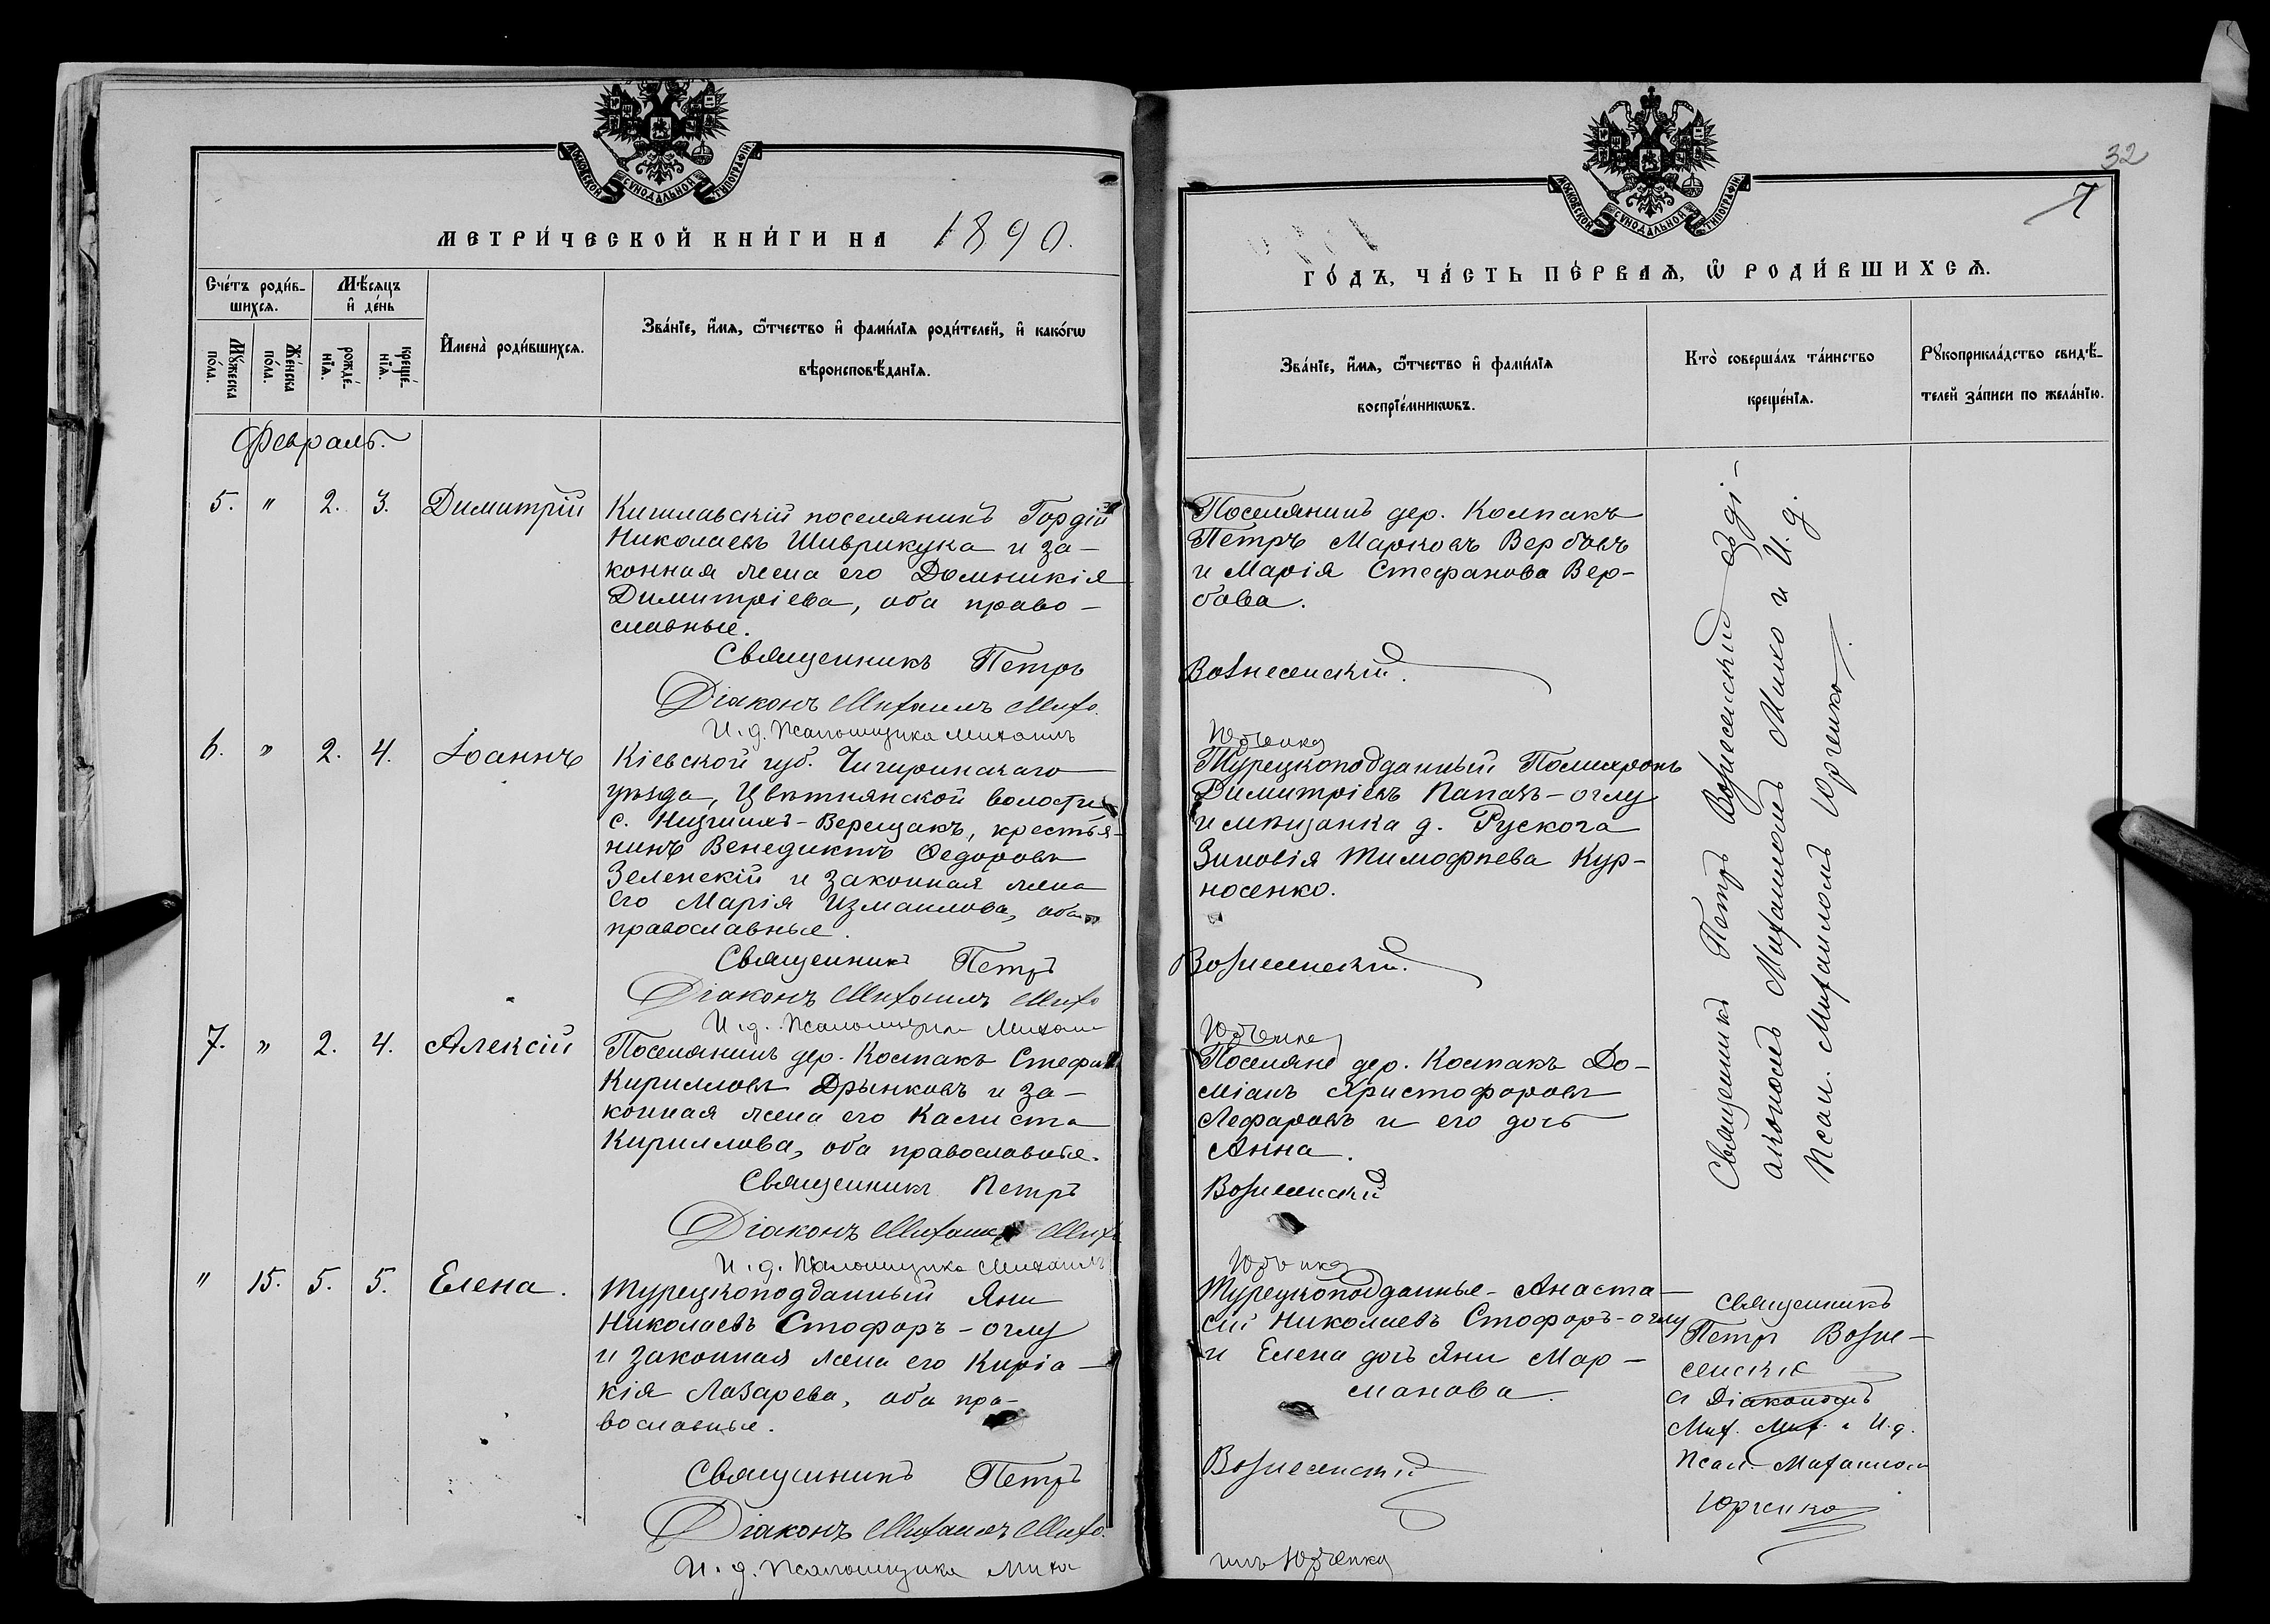 МОСКОВСКОЙ СѴНОДАЛЬНОЙ ТИПОГРАФІИ
МЕТРИ́ЧЕСКОЙ КНИ́ГИ НА 1890.
Сче́тъ роди́в-
шихсѧ.
Мѣ́сѧцъ
и҆ де́нь
Мꙋ́жеска
по́ла.
Же́нска
по́ла.
рожде́-
нїѧ.
креще́-
нїѧ.
И҆мена̀ роди́вшихсѧ.
Зва́нїе, и҆́мѧ, ѻ҆́тчество и҆ фами́лїѧ роди́телей, и҆ како́гѡ
вѣроисповѣ́данїѧ.
Февраль.
5. " 2. 3. Димитрій
Кишлавскій поселянинъ Гордій
Николаевъ Шиврикука и за-
конная жена его Домникія
Димитріева, оба право-
славные.
Священникъ Петръ
Діаконъ Михаилъ Михо.
И. д. Псаломщика Михаилъ
6. " 2. 4. Іоаннъ
Кіевской губ. Чигиринскаго
уѣзда, Цвѣтнянской волости
с. Нижнихъ-Верещакъ, крестья-
нинъ Венедиктъ Ѳедоровъ
Зеленскій и законная жена
его Марія Измаилова, оба
православные.
Священникъ Петръ
Діаконъ Михаилъ Михо
И. д. Псаломщика Михаи
7. " 2. 4. Алексій
Поселянинъ дер. Колпакъ Стефанъ
Кирилловъ Дрынковъ и за-
конная жена его Калиста
Кириллова, оба православные.
Священникъ Петръ
Діаконъ Михаилъ Михо
И. д. Псаломщика Михаилъ
" 15. 5. 5. Елена.
Турецкоподданный Яни
Николаевъ Стофоръ-оглу
и законная жена его Киріа-
кія Лазарева, оба пра-
вославные.
Священникъ Петръ
Діаконъ Михаилъ Михо.
И. д. Псаломщика Миха
32
7
МОСКОВСКОЙ СѴНОДАЛЬНОЙ ТИПОГРАФІИ
ГО́ДЪ, ЧА́СТЬ ПЕ́РВАѦ, Ѡ҆ РОДИ́ВШИХСѦ.
Зва́нїе, и҆́мѧ, ѻ҆́тчество и҆ фами́лїѧ
воспрїе́мникѡвъ.
Кто̀ соверша́лъ та́инство
креще́нїѧ.
Рꙋкоприкла́дство свидѣ́-
телей за́писи по жела́нїю.
Поселянинъ дер. Колпакъ
Петръ Марковъ Вербовъ
и Марія Стефанова Вер-
бова.
Вознесенскій.
Юрченко
Турецкоподданный Полихронъ
Димитріевъ Папазъ-оглу
и мѣщанка д. Рускога
Зиновія Тимофѣева Кур-
носенко.
Вознесенскій.
Юрченко
Поселяне дер. Колпакъ До-
міанъ Христофоровъ
Лефаровъ и его дочь
Анна.
Вознесенскій
Юрченко
Турецкоподданные Анаста-
сій Николаевъ Стофоръ-оглу
и Елена дочь Яни Мар-
манова.
Вознесенскій
илъ Юрченко
Священникъ Петръ Вознесенскій съ ді-
акономъ Михаиломъ Михо и И. д.
Псал. Михаиломъ Юрченко.
Священникъ
Петръ Возне-
сенскій
с Діакономъ
Мих. Мих. и И. д.
Псал. Михаиломъ
Юрченко